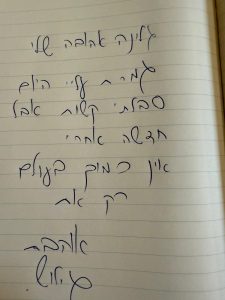 גלינה אהובה שלי
שמרת עליי היום
סבלתי קשות אבל
חדשה אחרי
אין כמוך בעולם
רק את
אוהבת